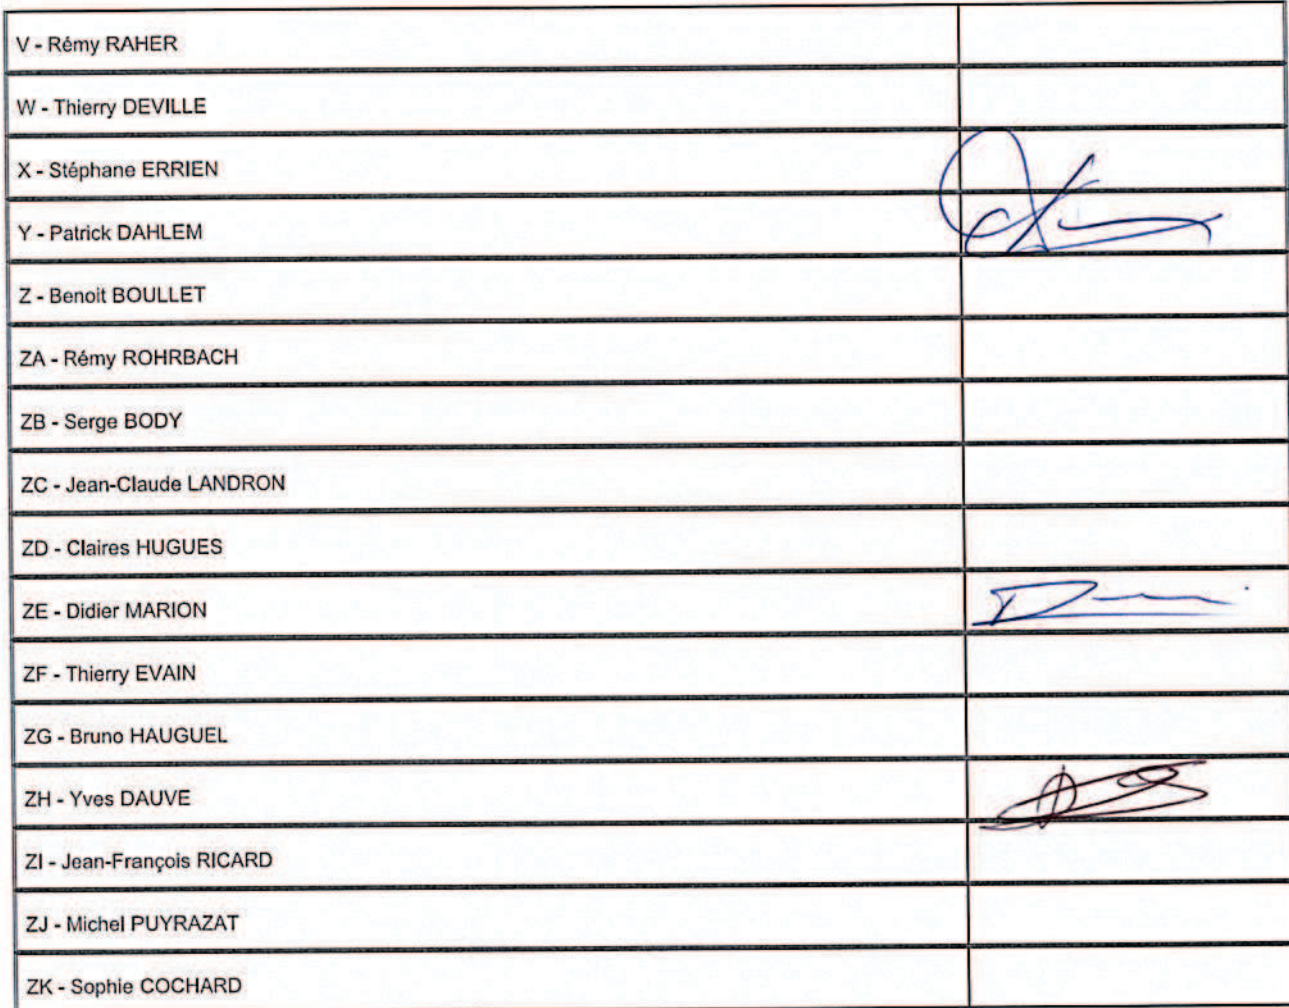 V - Rémy RAHER
W - Thierry DEVILLE
X - Stéphane ERRIEN
Y - Patrick DAHLEM
Z - Benoit BOULLET
ZA - Rémy ROHRBACH
ZB - Serge BODY
ZC - Jean-Claude LANDRON
ZD - Claires HUGUES
ZE - Didier MARION
ZF - Thierry EVAIN
ZG - Bruno HAUGUEL
ZH - Yves DAUVE
ZI - Jean-François RICARD
ZJ - Michel PUYRAZAT
ZK - Sophie COCHARD